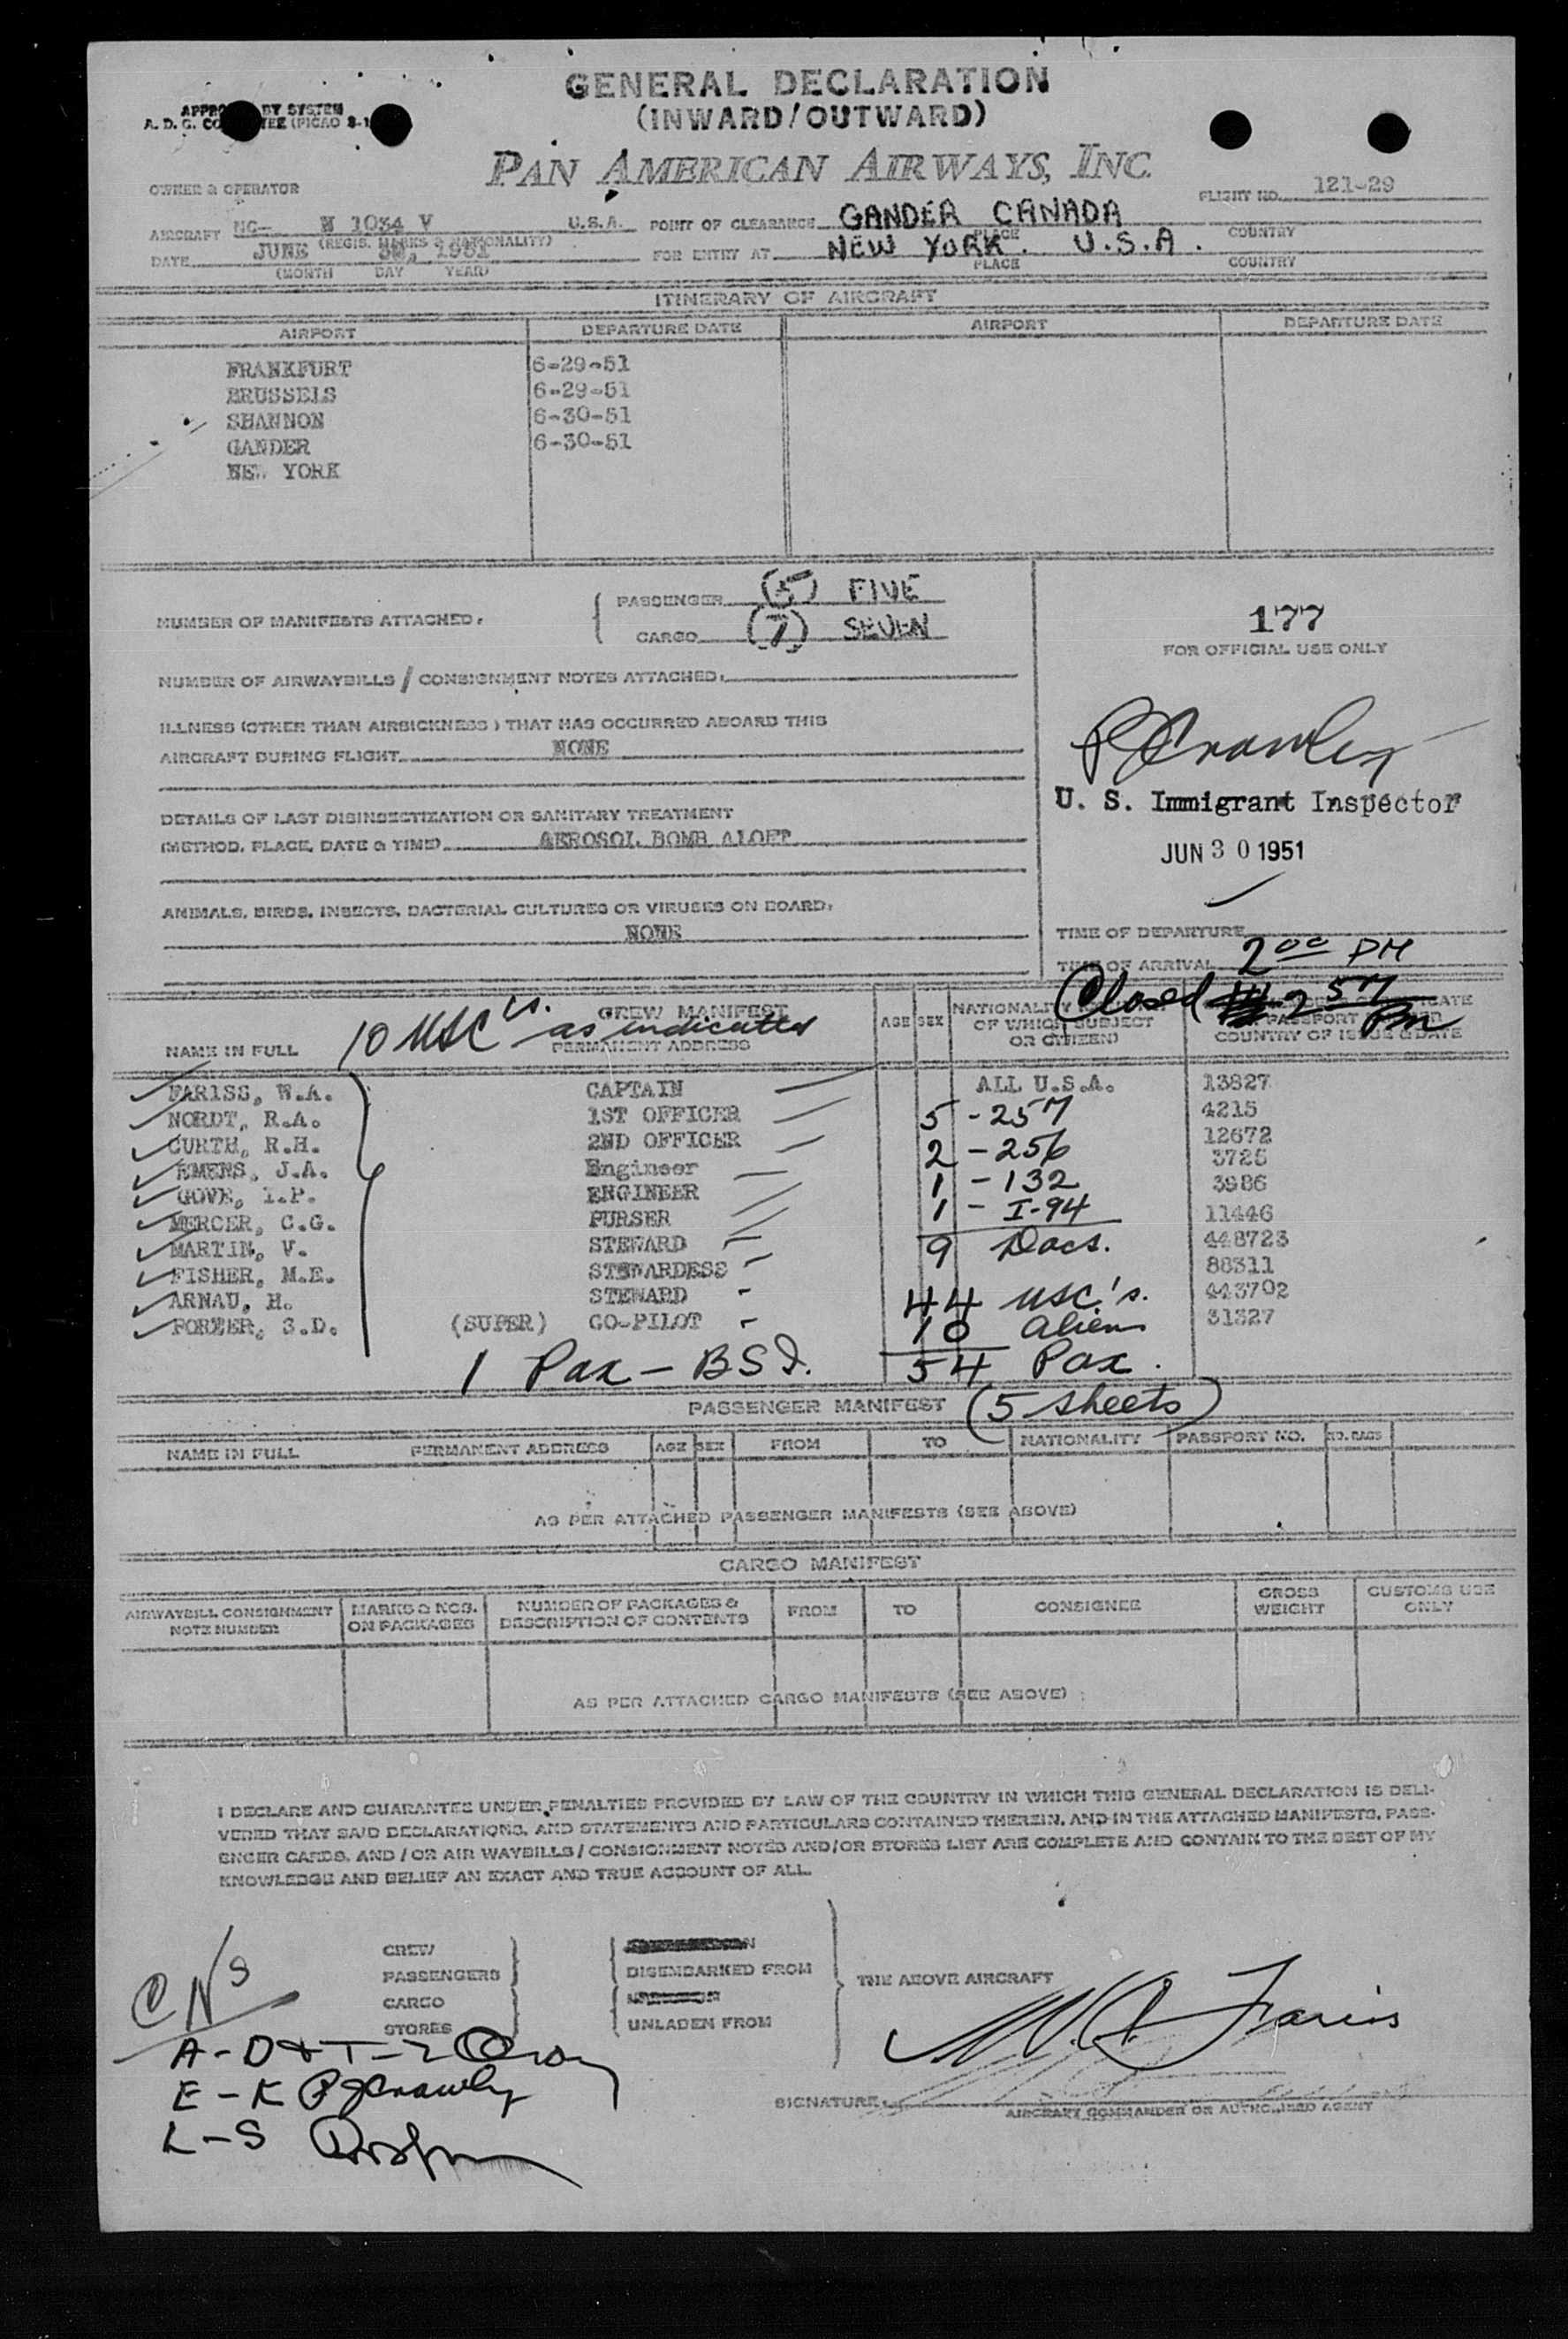 GENERAL DECLARATION
(INWARD/OUTWARD)
BY SYSTEM
A. D. C.
PAN AMERICAN AIRWAYS, INC.
OWNER & OPERATOR
FLIGHT NO. 121-29
AIRCRAFT NC- N 1034 V U.S.A. POINT OF CLEARANCE GANDER CANADA
(REGIS. MARKS & NATIONALITY) PLACE COUNTRY
DATE JUNE 30, 1951 FOR ENTRY AT NEW YORK. U.S.A.
(MONTH DAY YEAR) PLACE COUNTRY
ITINERARY OF AIRCRAFT
AIRPORT DEPARTURE DATE AIRPORT DEPARTURE DATE
FRANKFURT 6-29-51
BRUSSELS 6-29-51
SHANNON 6-30-51
GANDER 6-30-51
NEW YORK
NUMBER OF MANIFESTS ATTACHED: PASSENGER (5) FIVE
CARGO (7) SEVEN
177
FOR OFFICIAL USE ONLY
NUMBER OF AIRWAYBILLS / CONSIGNMENT NOTES ATTACHED:
ILLNESS (OTHER THAN AIRSICKNESS) THAT HAS OCCURRED ABOARD THIS
AIRCRAFT DURING FLIGHT NONE
P J Crawley
U. S. Immigrant Inspector
JUN 30 1951
DETAILS OF LAST DISINSECTIZATION OR SANITARY TREATMENT
(METHOD, PLACE, DATE & TIME) AEROSOL BOMB ALOFT
ANIMALS, BIRDS, INSECTS, BACTERIAL CULTURES OR VIRUSES ON BOARD:
NONE
TIME OF DEPARTURE
TIME OF ARRIVAL 2 00 PM
Closed 2 57 Pm
10 USC's. as indicated
CREW MANIFEST
NAME IN FULL PERMANENT ADDRESS AGE SEX NATIONALITY
OF WHICH SUBJECT
OR CITIZEN)
PASSPORT
COUNTRY OF ISSUE & DATE
FARISS, W.A. CAPTAIN ALL U.S.A. 13827
NORDT, R.A. 1ST OFFICER 5 - 257 4215
CURTH, R.H. 2ND OFFICER 2 - 256 12672
EMENS, J.A. Engineer 1 - 132 3725
GOVE, I.P. ENGINEER 1 - I-94 3986
MERCER, C.G. PURSER 11446
MARTIN, V. STEWARD 9 Docs. 448723
FISHER, M.E. STEWARDESS 88311
ARNAU, H. STEWARD 44 USC's. 443702
S.D. (SUPER) CO-PILOT 10 Aliens 31327
1 Pax - BSI. 54 Pax.
PASSENGER MANIFEST (5 sheets)
NAME IN FULL PERMANENT ADDRESS AGE SEX FROM TO NATIONALITY PASSPORT NO. NO. BAGS
AS PER ATTACHED PASSENGER MANIFESTS (SEE ABOVE)
CARGO MANIFEST
AIRWAYBILL CONSIGNMENT NOTE NUMBER MARKS & NOS. ON PACKAGES NUMBER OF PACKAGES & DESCRIPTION OF CONTENTS FROM TO CONSIGNEE GROSS WEIGHT CUSTOMS USE ONLY
AS PER ATTACHED CARGO MANIFESTS (SEE ABOVE)
I DECLARE AND GUARANTEE UNDER PENALTIES PROVIDED BY LAW OF THE COUNTRY IN WHICH THIS GENERAL DECLARATION IS DELI-
VERED THAT SAID DECLARATIONS, AND STATEMENTS AND PARTICULARS CONTAINED THEREIN, AND IN THE ATTACHED MANIFESTS, PASS-
ENGER CARDS, AND / OR AIR WAYBILLS / CONSIGNMENT NOTED AND/OR STORES LIST ARE COMPLETE AND CONTAIN TO THE BEST OF MY
KNOWLEDGE AND BELIEF AN EXACT AND TRUE ACCOUNT OF ALL.
CREW
PASSENGERS DISEMBARKED FROM THE ABOVE AIRCRAFT
CARGO
STORES UNLADEN FROM
C N s
A - D & T - Z
E - K P J Crawley
L - S
W. A. Fariss
SIGNATURE:
AIRCRAFT COMMANDER OR AUTHORISED AGENT